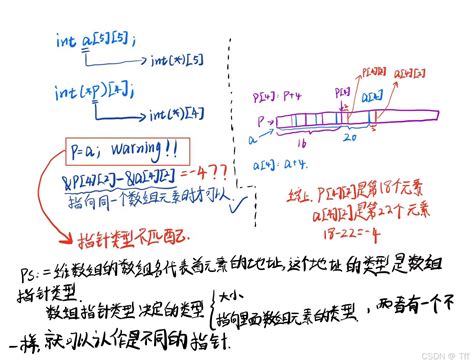 int a[5][5];
int(*)[5]
int(*p)[4];
int(*)[4]
p=a; warning!!
&p[4][2]-&a[4][2]=-4??
指向同一个数组元素时才可以
指针类型不匹配
p[4]: p+4
p[4]
p[4][2]
a[4]
a[4][2]
p
a
16
20
a[4]: a+4
综上, p[4][2]是第18个元素
a[4][2]是第22个元素
18-22=-4
PS: 二维数组的数组名代表首元素的地址,这个地址的类型是数组
指针类型.
数组指针类型决定的类型
大小
指向里面数组元素的类型, 两者有一个不
一样,就可以认作是不同的指针.
CSDN @ Tff